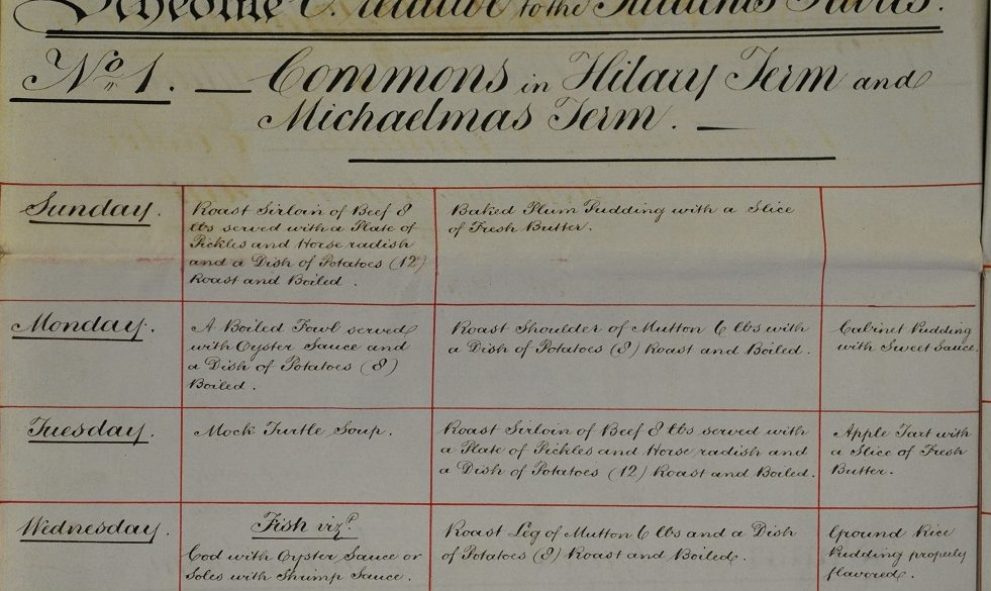 Scheme C. relative to the Students Tables.
No. 1. — Commons in Hilary Term and
Michaelmas Term. —
Sunday.
Roast Sirloin of Beef 8
lbs served with a Plate of
Pickles and Horse radish
and a Dish of Potatoes (12)
Roast and Boiled.
Baked Plum Pudding with a Slice
of Fresh Butter.
Monday.
A Boiled Fowl served
with Oyster Sauce and
a Dish of Potatoes (8)
Boiled.
Roast Shoulder of Mutton 6 lbs with
a Dish of Potatoes (8) Roast and Boiled.
Cabinet Pudding
with Sweet Sauce.
Tuesday.
Mock Turtle Soup.
Roast Sirloin of Beef 8 lbs served with
a Plate of Pickles and Horse radish and
a Dish of Potatoes (12) Roast and Boiled.
Apple Tart with
a Slice of Fresh
Butter.
Wednesday.
Fish vizt.
Cod with Oyster Sauce or
Soles with Shrimp Sauce.
Roast Leg of Mutton 6 lbs and a Dish
of Potatoes (8) Roast and Boiled.
Ground Rice
Pudding properly
flavored.